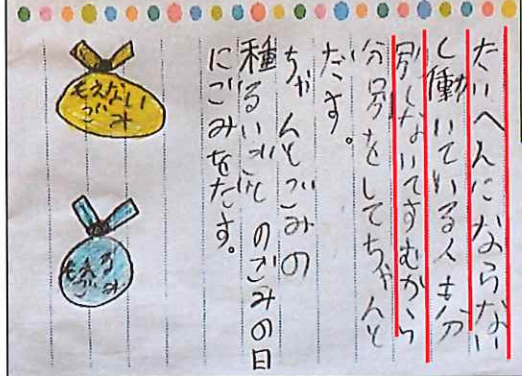 たいへんにならない
し働いている人も分
別しないですむから
分別をしてちゃんと
だす。
ちゃんとごみの
種るいごとのごみの日
にごみをだす。
もえない
ごみ
もえる
ごみ